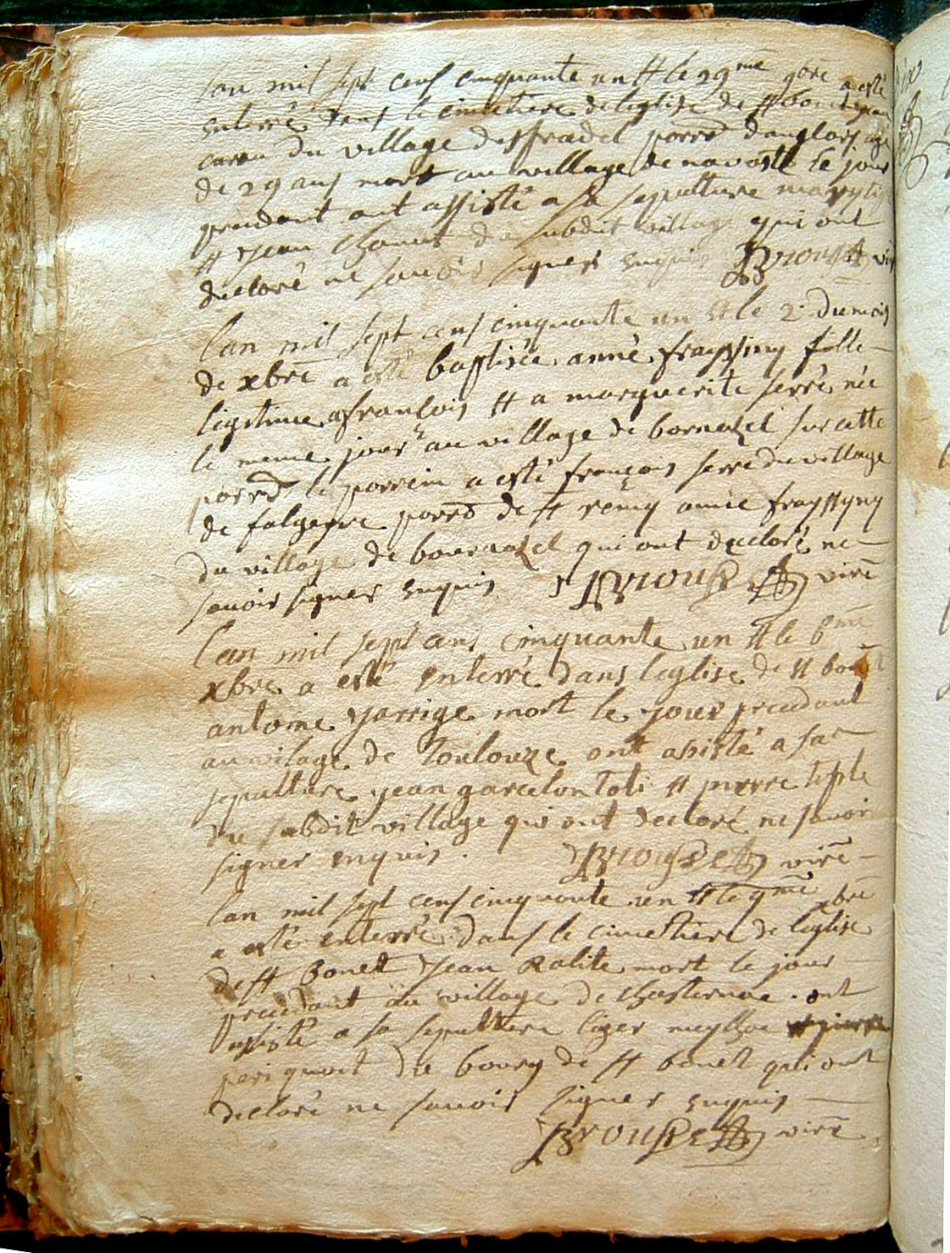 lan mil sept cens cinquante un & le 29me 9bre a esté
enterré dans le cimetiere de leglise de st bonet jean
du village de porre danglars agé
de 29 ans mort au village de navoste le jour
precdant ont assisté a sa sepulture
& jean du subdit village qui ont
declaré ne savoir signer enquis Brousse vire
lan mil sept cens cinquante un & le 2 du mois
de xbre a esté baptisée anne frayssiny fille
legitime a francois & a marguerite serre née
le meme jour au village de bornazel sur cette
porre le porrein a esté françois serre du village
de falgeyre porre de st remy anne frayssyny
du village de bournazel qui ont declaré ne
savoir signer enquis Brousse vire
lan mil sept ans cinquante un & le 6me
xbre a esté enterré dans leglise de st bonet
antoine jarrige mort le jour precdant
au vilage de toulouze ont asisté a sa
sepulture jean garcelon toti & pierre teste
du subdit village qui ont declaré ne savoir
signer enquis. Brousse vire
lan mil sept cens cinquante un & le 9me xbre
a esté enterré dans le cimetiere de leglise
de st bonet jean ralite mort le jour
precdant au village de chasternac ont
assisté a sa sepulture liger & pierre
periquoit du bourg de st bonet qui ont
declaré ne savoir signer enquis
Brousse vire